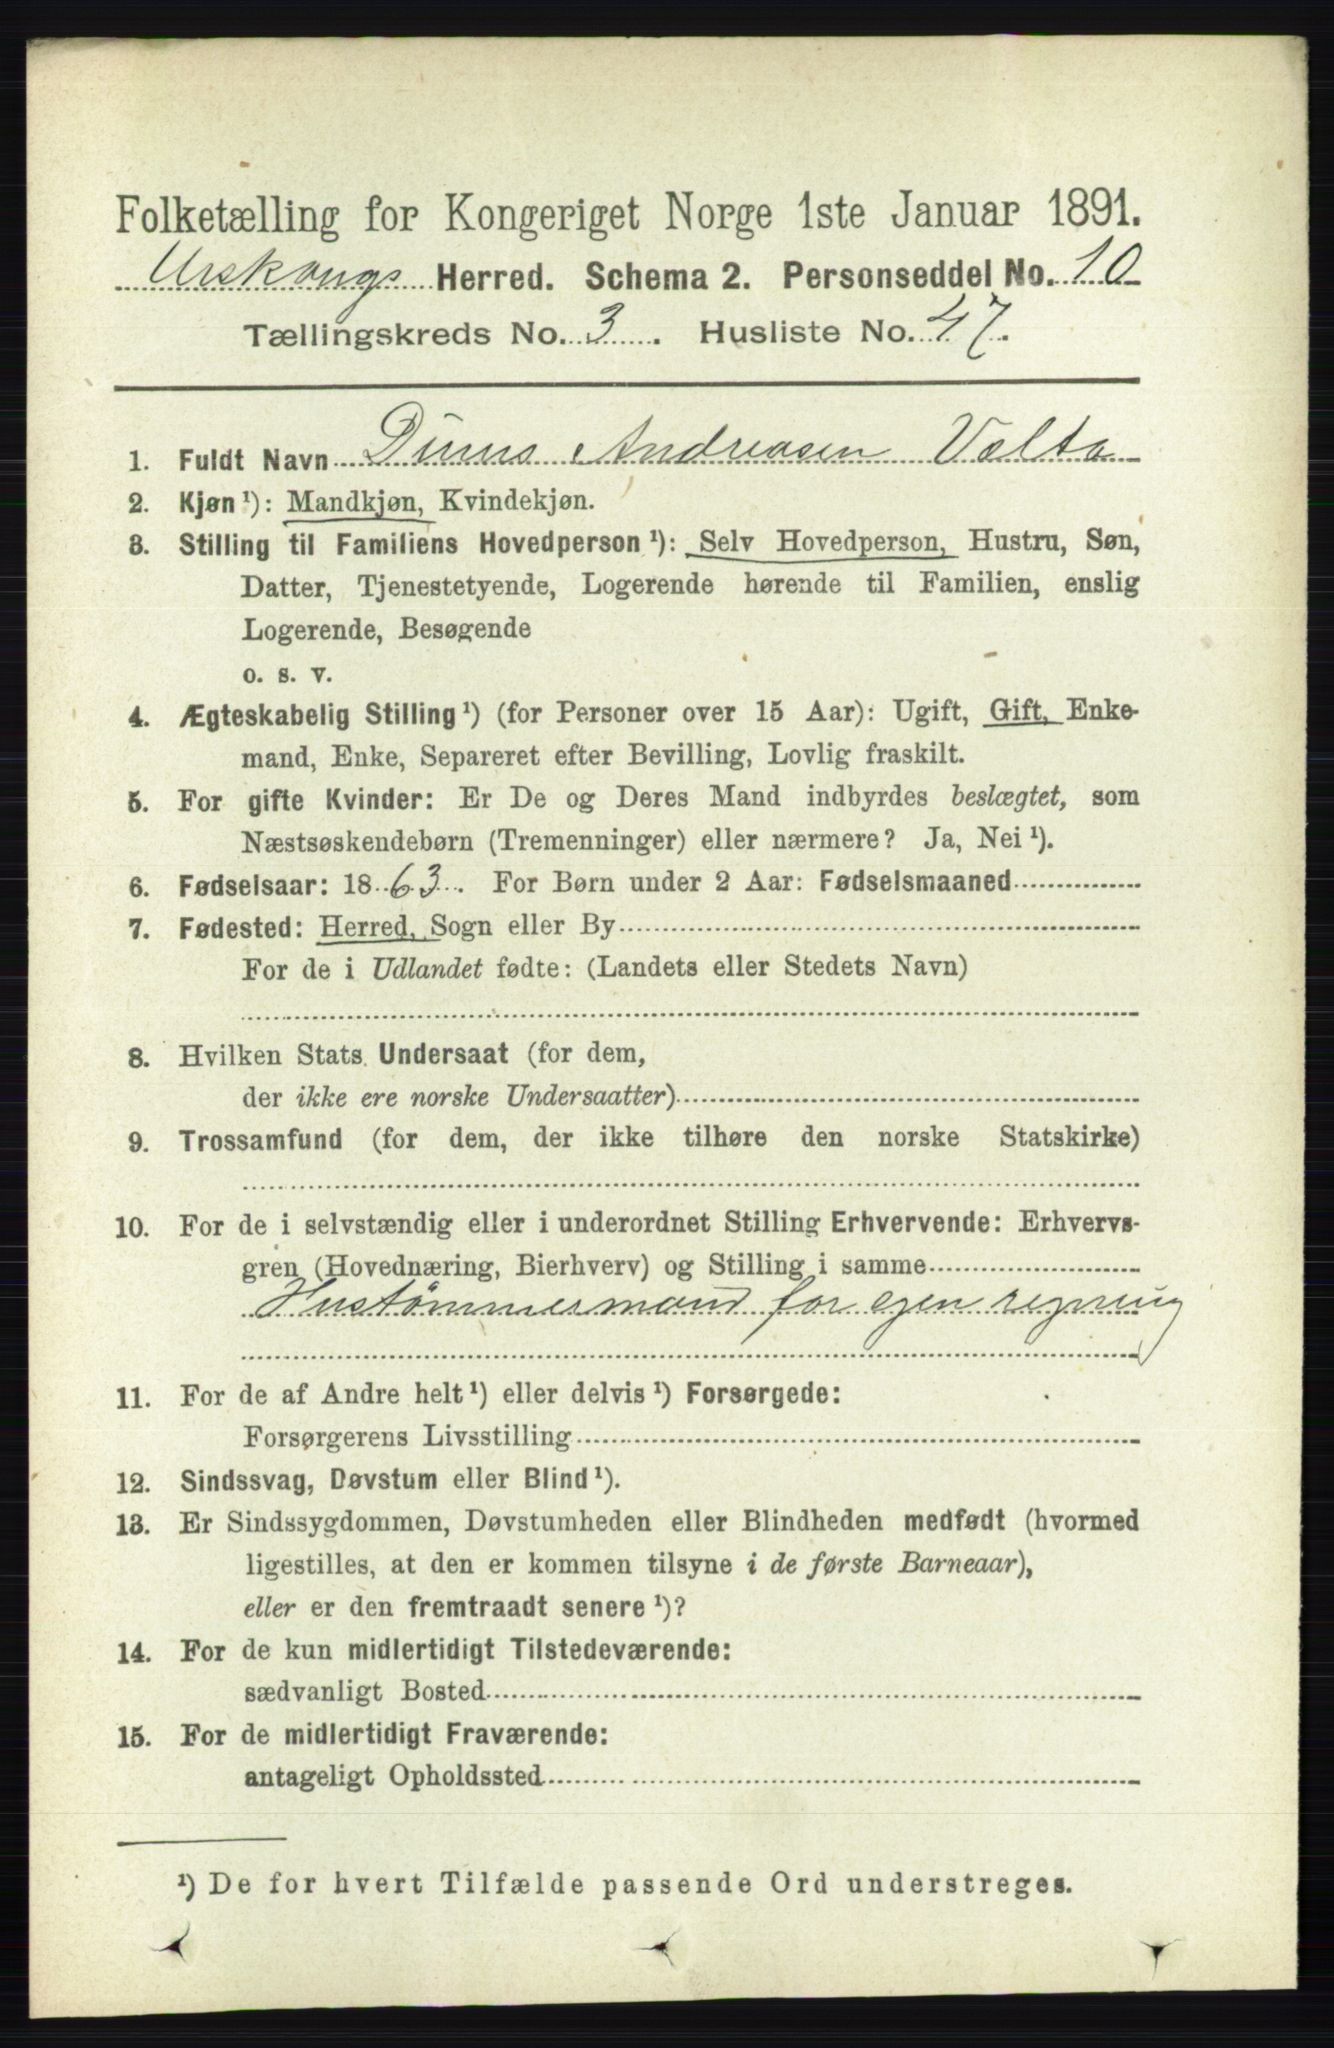 Folketælling for Kongeriget Norge 1ste Januar 1891.
Urskougs Herred. Schema 2. Personseddel No. 10
Tællingskreds No. 3. Husliste No. 47.
1. Fuldt Navn Andreasen Valta
2. Kjøn ¹): Mandkjøn, Kvindekjøn.
3. Stilling til Familiens Hovedperson ¹): Selv Hovedperson, Hustru, Søn,
Datter, Tjenestetyende, Logerende hørende til Familien, enslig
Logerende, Besøgende
o. s. v.
4. Ægteskabelig Stilling ¹) (for Personer over 15 Aar): Ugift, Gift, Enke-
mand, Enke, Separeret efter Bevilling, Lovlig fraskilt.
5. For gifte Kvinder: Er De og Deres Mand indbyrdes beslægtet, som
Næstsøskendebørn (Tremenninger) eller nærmere? Ja, Nei ¹).
6. Fødselsaar: 1863. For Børn under 2 Aar: Fødselsmaaned
7. Fødested: Herred, Sogn eller By
For de i Udlandet fødte: (Landets eller Stedets Navn)
8. Hvilken Stats Undersaat (for dem,
der ikke ere norske Undersaatter)
9. Trossamfund (for dem, der ikke tilhøre den norske Statskirke)
10. For de i selvstændig eller i underordnet Stilling Erhvervende: Erhvervs-
gren (Hovednæring, Bierhverv) og Stilling i samme
Hustömmermand for egen regning
11. For de af Andre helt ¹) eller delvis ¹) Forsørgede:
Forsørgerens Livsstilling
12. Sindssvag, Døvstum eller Blind ¹).
13. Er Sindssygdommen, Døvstumheden eller Blindheden medfødt (hvormed
ligestilles, at den er kommen tilsyne i de første Barneaar),
eller er den fremtraadt senere ¹)?
14. For de kun midlertidigt Tilstedeværende:
sædvanligt Bosted
15. For de midlertidigt Fraværende:
antageligt Opholdssted
¹) De for hvert Tilfælde passende Ord understreges.